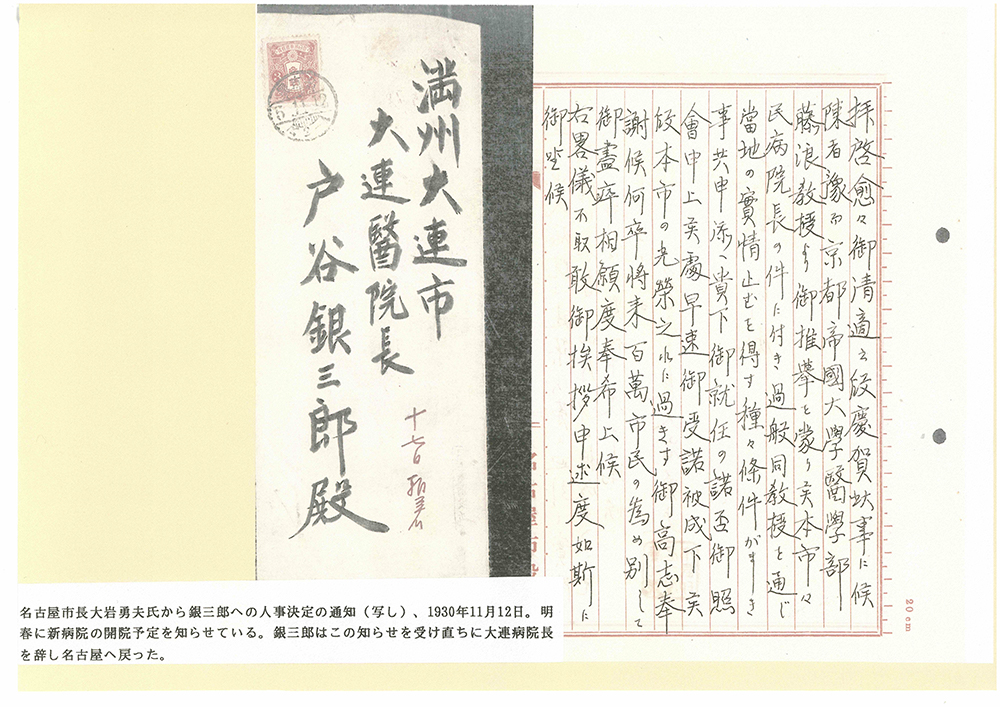 満州大連市
大連醫院長
戸谷銀三郎殿
十七日
5.11.12
拝啓愈々御清適之段慶賀此事に候
陳者豫而京都帝國大學醫學部
藤浪教授より御推挙を蒙り候本市々
民病院長の件に付き過般同教授を通じ
當地の實情止むを得す種々條件がましき
事共申添へ貴下御就任の諾否御照
會申上候處早速御受諾被成下候
段本市の光榮之れに過きす御高志奉
謝候何卒将来百萬市民の為め別して
御盡瘁相願度奉希上候
右畧儀不取敢御挨拶申述度如斯に
御座候
名古屋市役
20cm
名古屋市長大岩勇夫氏から銀三郎への人事決定の通知（写し）、1930年11月12日。明
春に新病院の開院予定を知らせている。銀三郎はこの知らせを受け直ちに大連病院長
を辞し名古屋へ戻った。